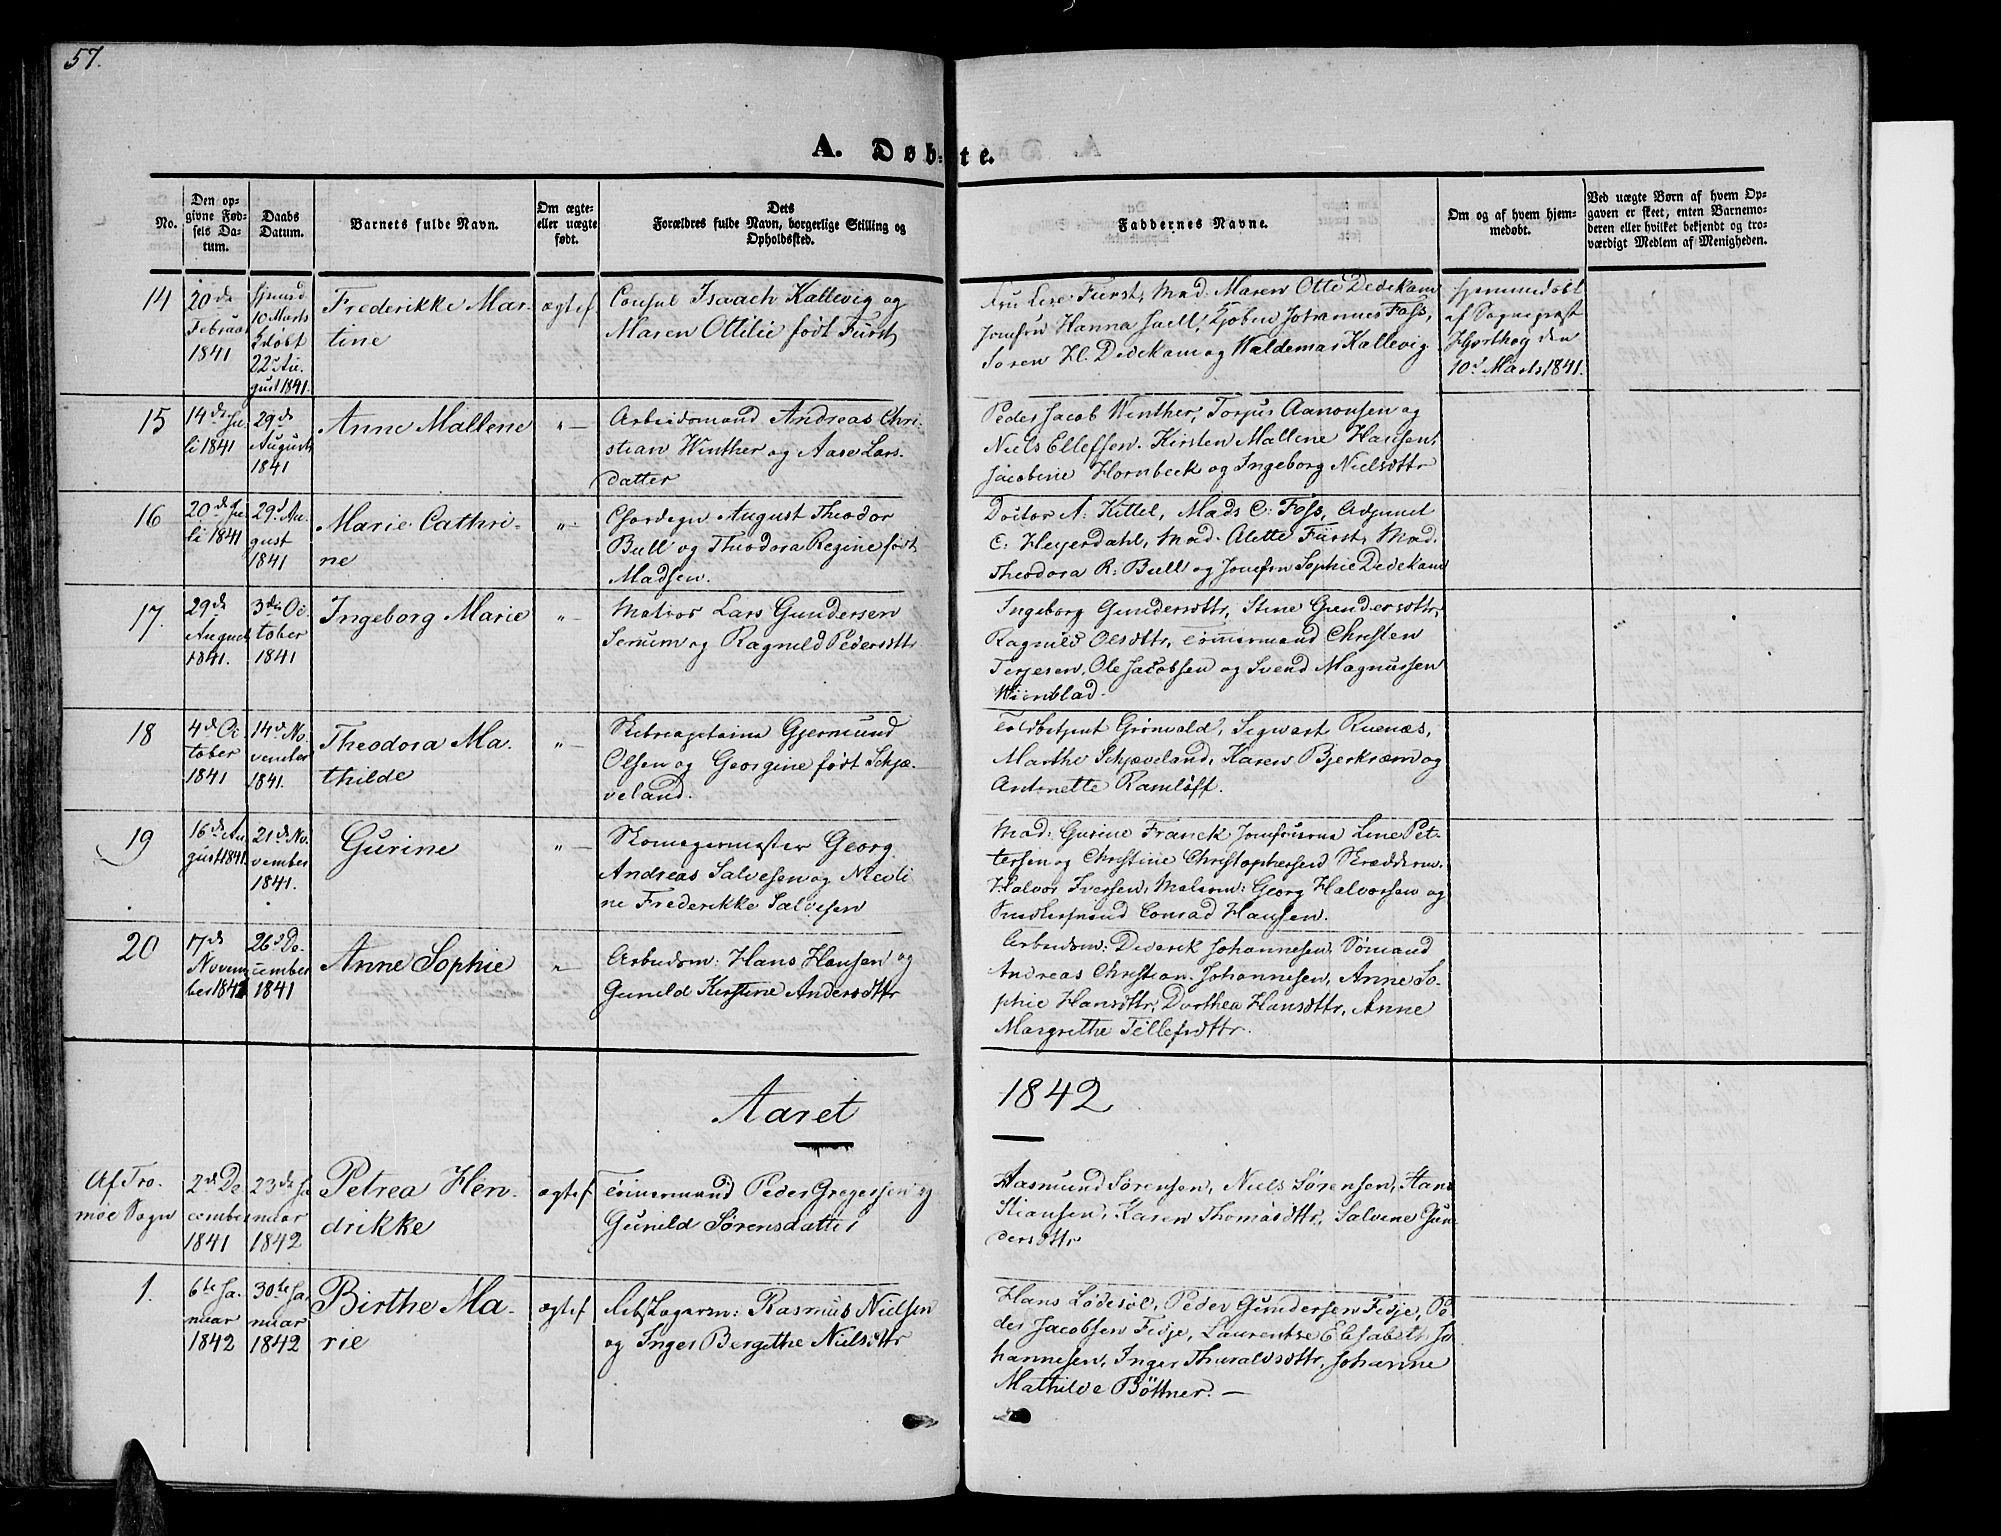 57.
A. Døb- te.
No.
Den op-
givne Fød-
sels Da-
tum.
Daabs
Datum.
Barnets fulde Navn.
Om ægte-
eller uægte
født.
Dets
Forældres fulde Navn, borgerlige Stilling og
Opholdssted.
Faddernes Navne.
Om og af hvem hjem-
medøbt.
Ved uægte Børn af hvem Op-
gaven er skeet, enten Barnemo-
deren eller hvilket bekjendt og tro-
værdigt Medlem af Menigheden.
14
20de
Februar
1841
hjemd
10 Marts
døbt
22d Au-
gust 1841.
Frederikke Mar-
tine
ægtef
Consul Isaach Kallevig og
Maren Ottilie født Fürst
Fru Lese Fürst, Mad. Maren Otte Dedekam
Jomfru Hanna Juell, Kjøbm Johannes Foss,
Søren H. Dedekam og Waldemar Kallevig
hjemmedøbt
af Sognepræst
Hjorthog den
10d Marts 1841.
15
14de Ju-
li 1841
29de
August
1841
Anne Mallene
"—
Arbeidsmand Andreas Chri-
stian Winther og Aase Lars-
datter
Peder Jacob Winther, Torjus Aanonsen og
Niels Ellefsen. Kirsten Mallene Hansen,
Jacobine Hornbeck og Ingeborg Nielsdttr
16
20de Ju-
li 1841
29d Au-
gust
1841
Marie Cathri-
ne
"—
Chordegn August Theodor
Bull og Theodora Regine født
Madsen.
Doctor A. Kittel, Mads C. Foss, Adjunct
C. Heyerdahl, Mad. Alette Fürst, Mad.
Theodora R. Bull og Jomfru Sophie Dedekam
17.
29de
August
1841.
3die Oc-
tober
1841
Ingeborg Marie
"—
Matros Lars Gundersen
Serum og Ragnild Pedersdttr
Ingeborg Gundersdttr, Stine Gundersdttr,
Ragnild Olsdttr, Tömmermand Christen
Terjesen, Ole Jacobsen og Svend Magnussen
Wiinblad.
18
4de Oc-
tober
1841
14d No-
vember
1841.
Theodora Ma-
thilde
"—
Skibscapitaine Gjermund
Olsen og Georgine født Schjæ-
veland.
Toldbetjent Grönvald, Segwart Ruenæs,
Marthe Schjæveland, Karen Bjerkræm og
Antonette Ramløff.
19
16de Au-
gust 1841.
21de No-
vember
1841.
Gurine
"—
Skomagermester Georg
Andreas Salvesen og Nicoli
ne Frederikke Salvesen
Mad: Gurine Franck Jomfruerne Line Pet-
tersen og Christine Christophersen Skrædderm.
Halvor Iversen, Malerm: Georg Halvorsen og
Snedkersvend Conrad Hansen.
20
17de
Novem
ber 1841
26d De-
cember
1841
Anne Sophie
"—
Arbeidsm: Hans Hansen og
Gunild Kirstine Andersdttr
Arbeidsm: Dederik Johannesen, Sömand
Andreas Christian Johannesen, Anne So-
phie Hansdttr, Dorthea Hansdttr, Anne
Margrethe Tellefsdttr.
Aaret 1842
Af Tro-
möe Sogn
2de De
cember
1841
23de Ja
nuar
1842
Petrea Hen-
drikke
ægtef
Tömmermand Peder Gregersen og
Gunild Sørensdatter
Aasmund Sørensen, Niels Sørensen, Hans
Stiansen, Karen Thomasdttr, Salvine Gun-
dersdttr
1.
6te Ja-
nuar
1842
30te Ja-
nuar
1842
Birthe Ma-
rie
ægtef
Rasmus Nielsen
og Inger Bergithe Nielsdttr
Hans Lødesöl, Peder Gundersen Fedje, Pe
der Jacobsen Fedje, Laurentze Elisabeth Jo
hannesen, Inger Tharaldsdttr, Johanne
Mathilde Böttner. —